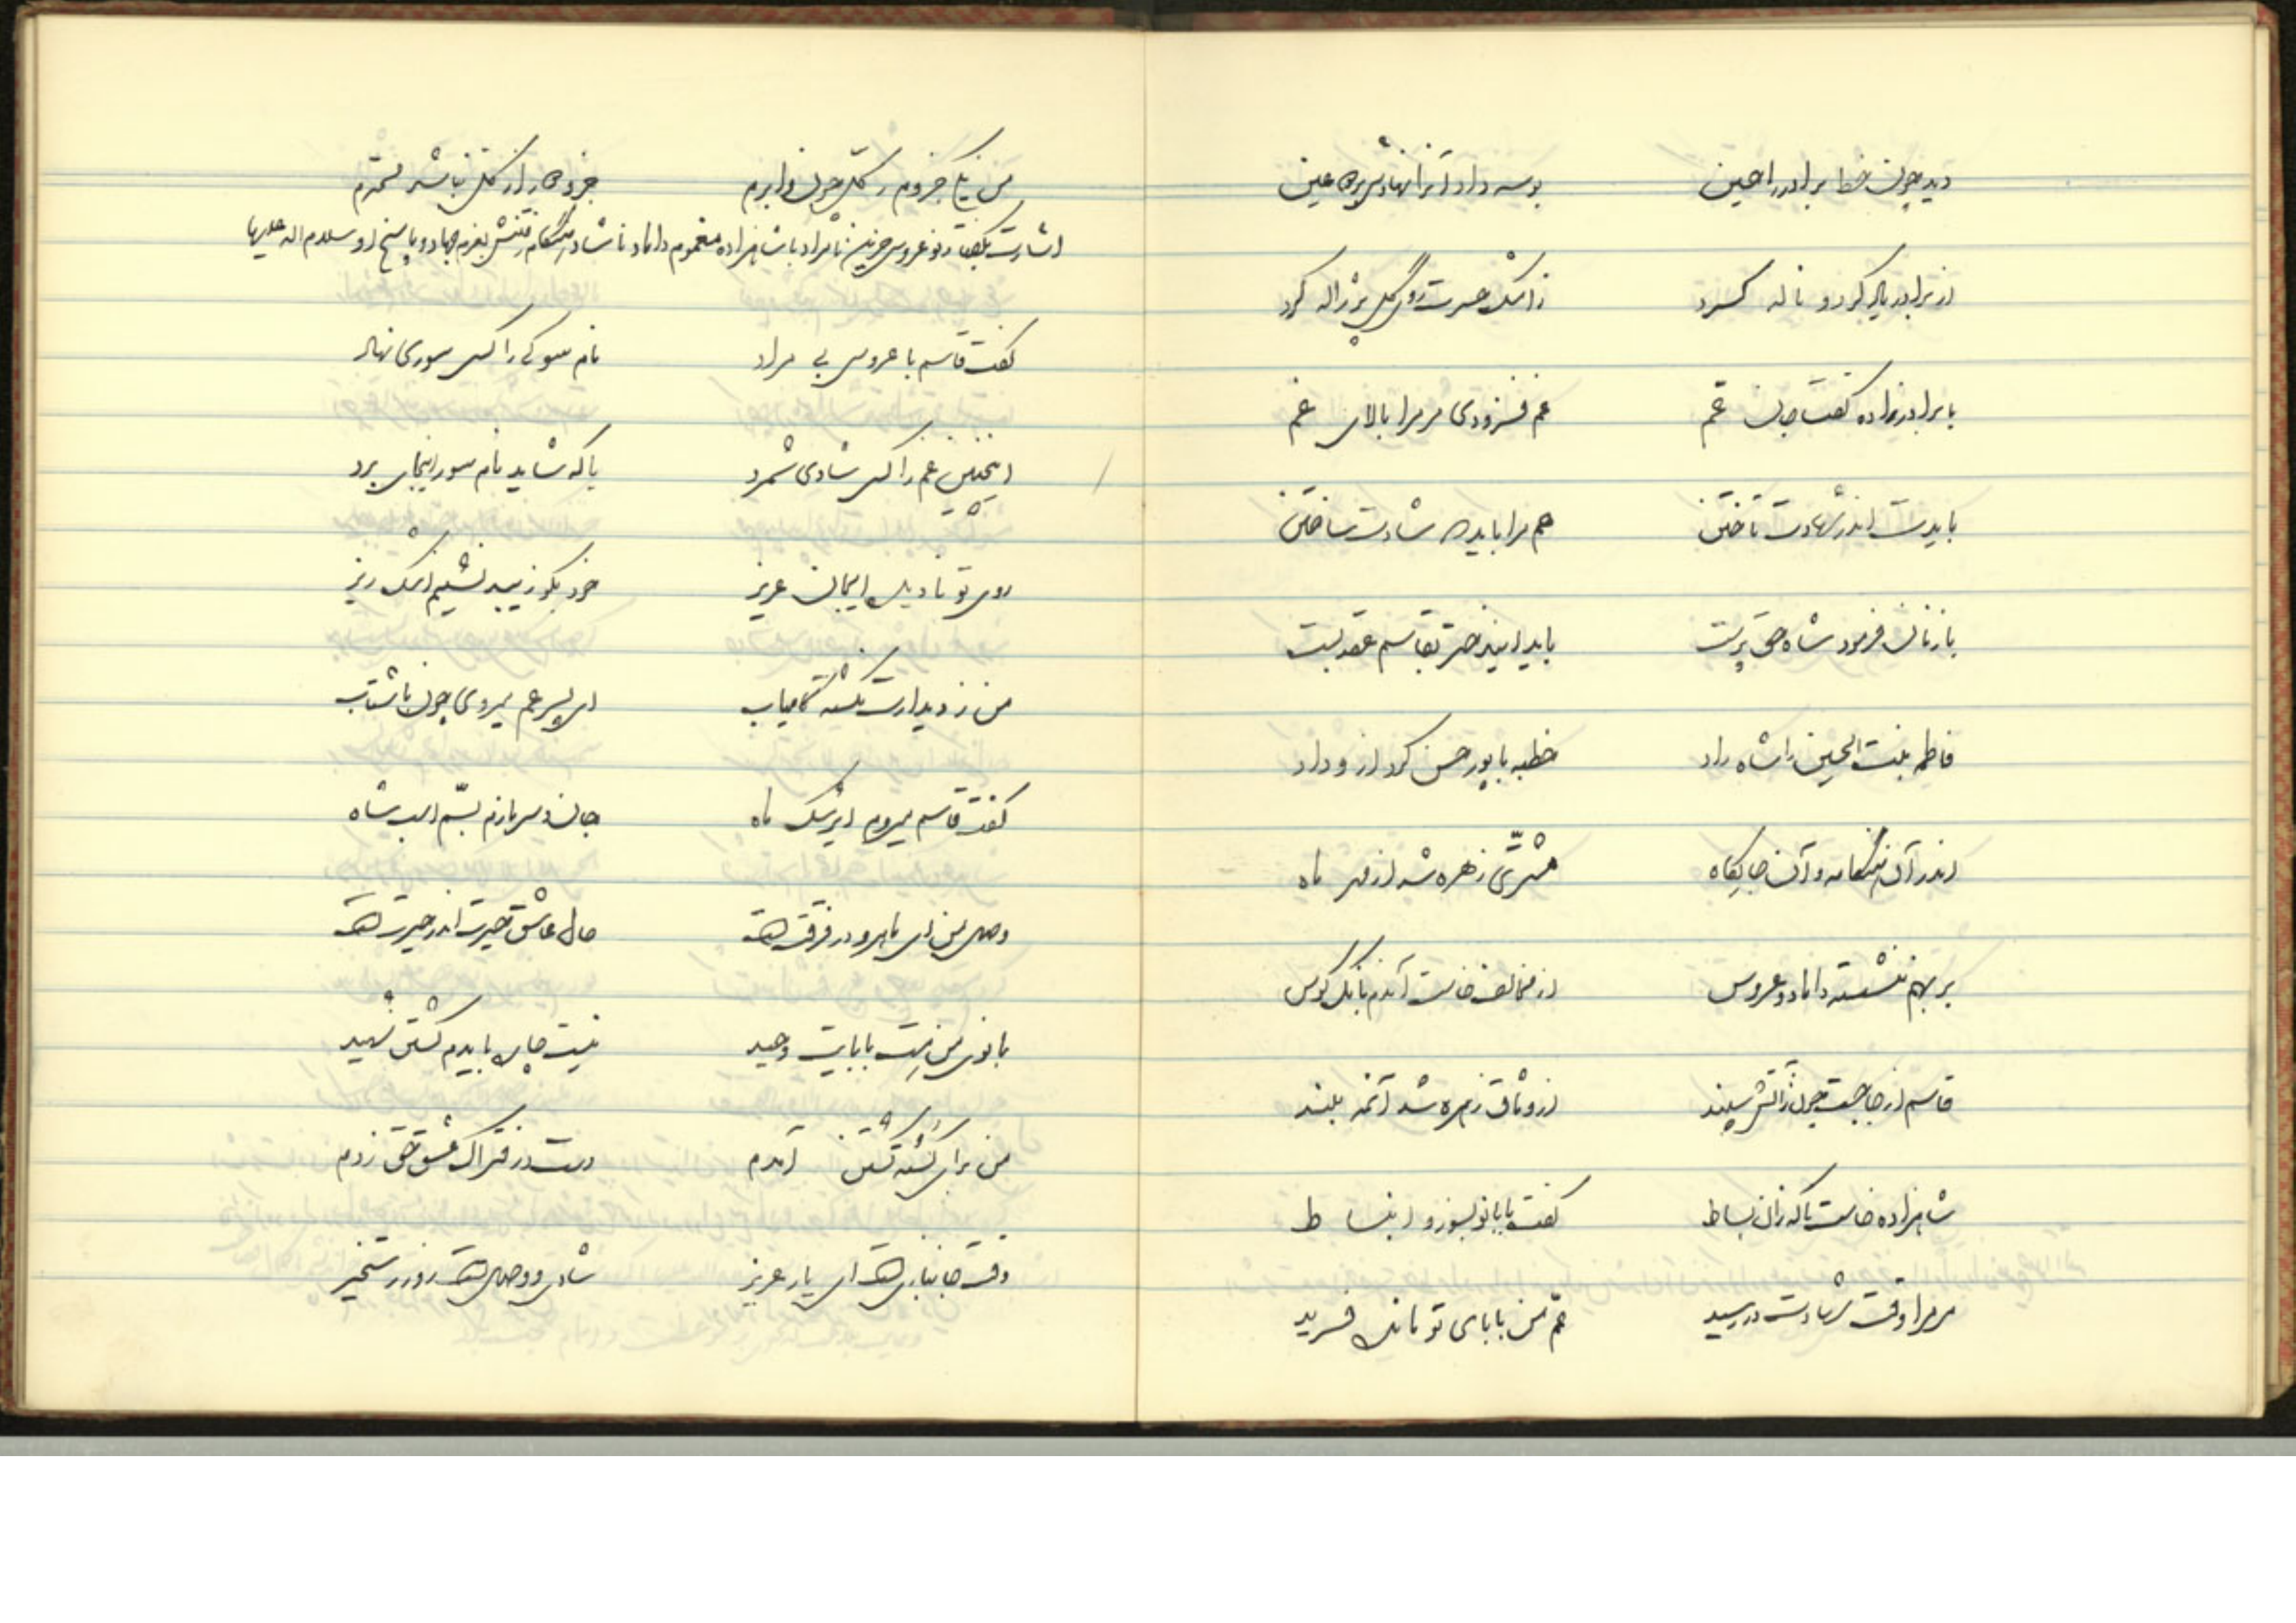 دید چون خط برادر را حسین بوسه داد آنرا نهادش بر عین
از برادر یاد کرد و ناله کرد ز اشک حسرت روی گل پر ژاله کرد
با برادرزاده گفت جان عم غم فزودی مر مرا بالای غم
بایدت اندر شهادت تاختن هم مرا باید شادت ساختن
با زنان فرمود شاه حق پرست باید این دختر بقاسم عقد بست
فاطمه بنت الحسین را شاه راد خطبه با پور حسن کرد از وداد
اندر آن هنگامه و آن جایگاه مشتری زهره شد از مهر ماه
بر بهم ننشسته داماد و عروس از مخالف خاست آندم بانگ کوس
قاسم از جا جست چون ز آتش سپند از وثاق زهره شد آنمه بلند
شاهزاده خاست تا که زان بساط گفت با بانو بسوز و انبساط
مر مرا وقت شهادت در رسید عم من بابای تو مانده فرید
من یکی جزوم ز کل چون وابرم جزو را از کل نباشد محترم
اشارت بگفتار نوعروس حزین نامراد با شاهزاده مغموم داماد ناشاد هنگام رفتنش بعزم جهاد و پاسخ او سلام اله علیها
گفت قاسم با عروس بی مراد نام سوکی را کس سوری نهاد
اینچنین غم را کس شادی شمرد یا که شاید نام سور اینجای برد
روی تو نادیده ایجان عزیز خود بگو زیبد نشینم اشک ریز
من ز دیدارت نگشته کامیاب ای پسر عم میروی چون با شتاب
گفت قاسم میروم ای رشک ماه جان و سر بازم بسم اسب شاه
وصل من ای ماهرو در فرقت است حال عاشق حیرت اندر حیرت است
بانوی من هست بابایت وحید نیست جای بایدم گشتن شهید
من برای کشته گشتن آمدم دست در فتراک عشق حق زدم
وقت جانبازی است ای یار عزیز شادی و وصل است روز رستخیز